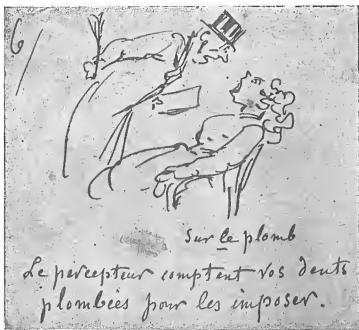 6/
Sur le plomb
Le percepteur comptent vos dents
plombées pour les imposer.